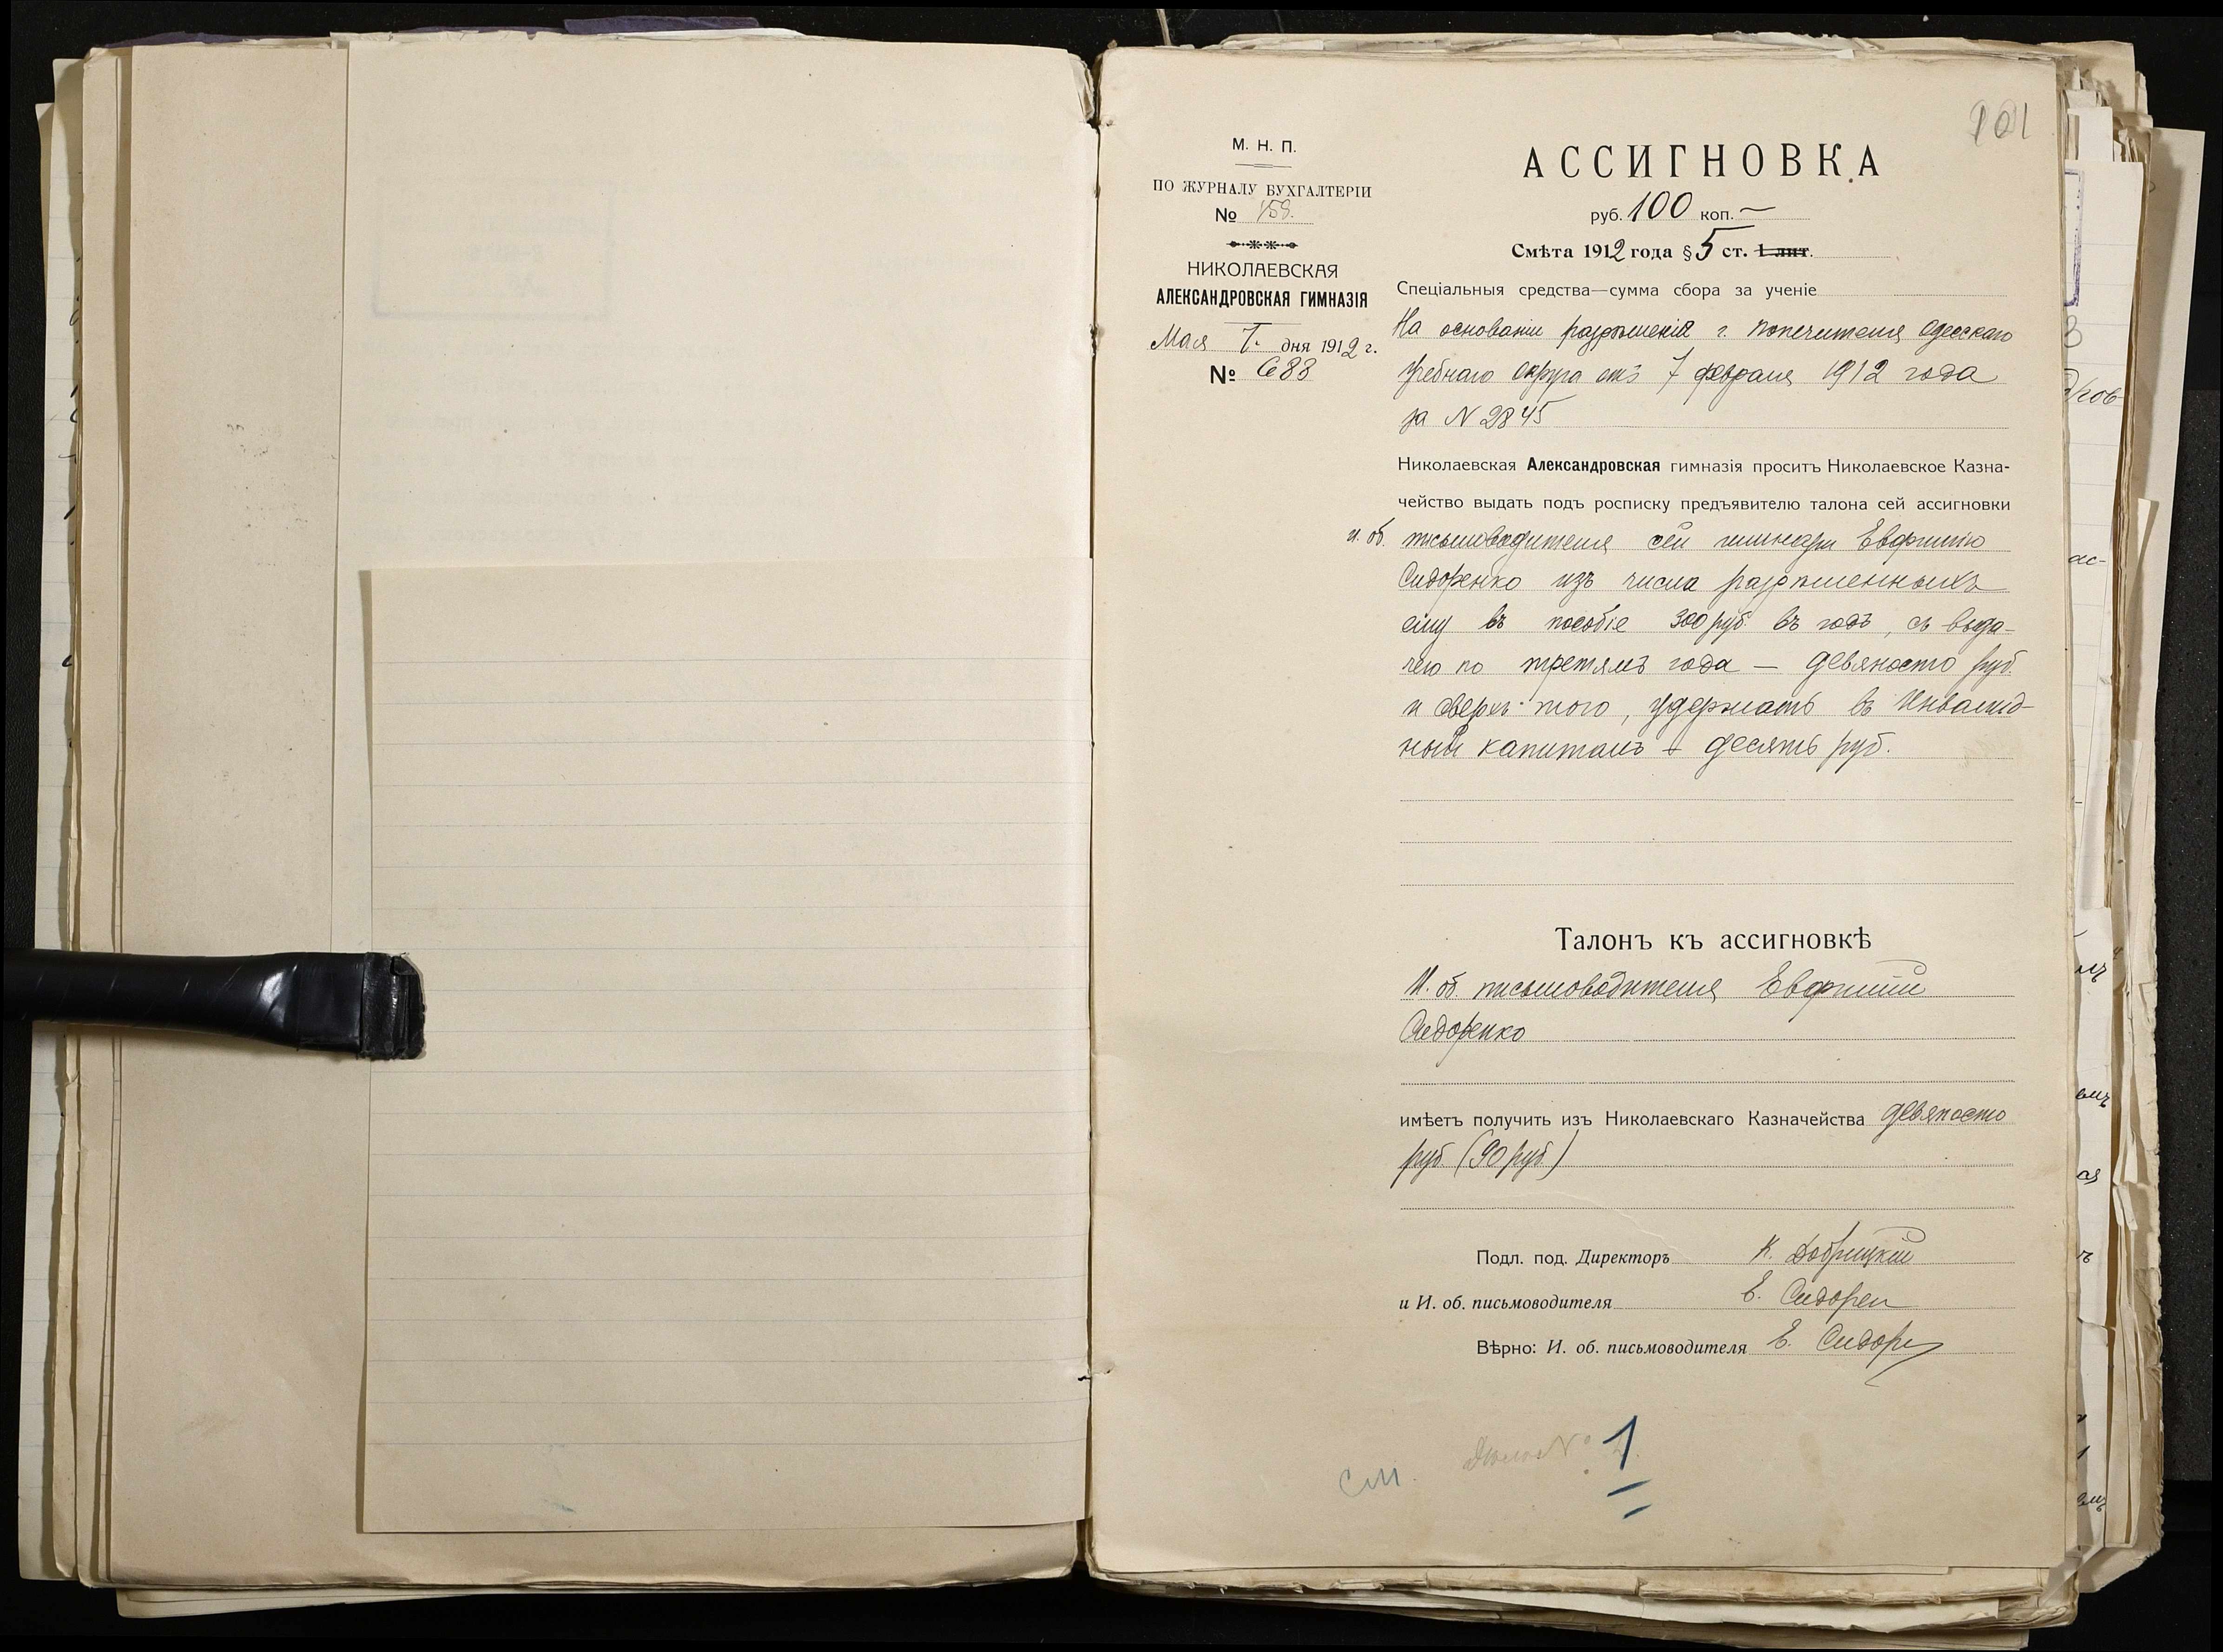 101
М. Н. П.
ПО ЖУРНАЛУ БУХГАЛТЕРІИ
№ 159.
НИКОЛАЕВСКАЯ
АЛЕКСАНДРОВСКАЯ ГИМНАЗІЯ
Мая 7. дня 1912 г.
№ 688
АССИГНОВКА
руб. 100 коп. —
Смѣта 1912 года § 5 ст. 1 лит.
Спеціальныя средства—сумма сбора за ученіе
На основаніи разрѣшенія г. Попечителя Одесскаго
Учебнаго Округа отъ 7 февраля 1912 года
за N 2845
Николаевская Александровская гимназія проситъ Николаевское Казна-
чейство выдать подъ росписку предъявителю талона сей ассигновки
и. об. письмоводителя сей гимназіи Евфимію
Сидоренко изъ числа разрѣшенныхъ
ему въ пособіе 300 руб. въ годъ, съ выда-
чею по третямъ года — девяносто руб.
и сверхъ того, удержать въ Инвалид-
ный капиталъ — десять руб.
Талонъ къ ассигновкѣ
И. об. письмоводителя Евфимій
Сидоренко
имѣетъ получить изъ Николаевскаго Казначейства девяносто
руб. (90 руб.)
Подл. под. Директоръ К. Добрицкій
и И. об. письмоводителя Е. Сидорен
Вѣрно: И. об. письмоводителя Е. Сидор
См. Дѣло № 1